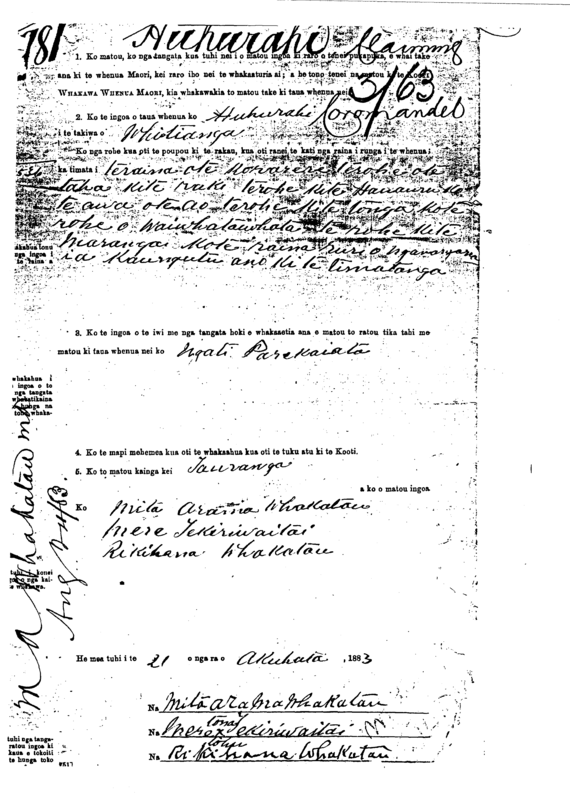 781
Huhurahi
claiming
1. Ko matou, ko nga tangata kua tuhi nei i o matou ingoa ki raro o tenei pukapuka, e whai take
ana ki te whenua Maori, kei raro iho nei te whakaturia ai; a he tono tenei na matou ki te Kooti
WHAKAWA WHENUA MAORI, kia whakawakia to matou take ki taua whenua nei
3/63
2. Ko te ingoa o taua whenua ko Huhurahi Coromandel
i te takiwa o Whitianga
Ko nga rohe kua pti te poupou ki te rakau, kua oti ranei te kati nga raina i runga i te whenua;
ka timata i teraina ote Konarere te rohe ote
taha kite raki terohe kite Hauauru ko
te awa ote ao terohe kite tonga kote
rohe o Waiwhatawhata te rohe kite
marangai kote raina
ia Kauriputu ano ki te timatanga
akahua tonu
nga ingoa i
te raina a
3. Ko te ingoa o te iwi me nga tangata hoki e whakaaetia ana e matou to ratou tika tahi me
matou ki taua whenua nei ko Ngati Parekaiata
whakahua i
i ingoa o te
nga tangata
whakatikaina
hunga na
tono whaka-
4. Ko te mapi mehemea kua oti te whakaahua kua oti te tuku atu ki te Kooti.
5. Ko to matou kainga kei Tauranga
a ko o matou ingoa
Ko Mita Arama Whakatau
Mere Tekiriwaitai
Rikihana Whakatau
M A Whakatau
Ang 24/83.
He mea tuhi i te 21 o nga ra o Akuhata , 1883
Na Mita Arama Whakatau
Na Mere x Tekiriwaitai
tona
Na Rikihana Whakatau
tohu
tuhi nga tanga-
ratou ingoa ki
kaua e tokoiti
te hunga toko